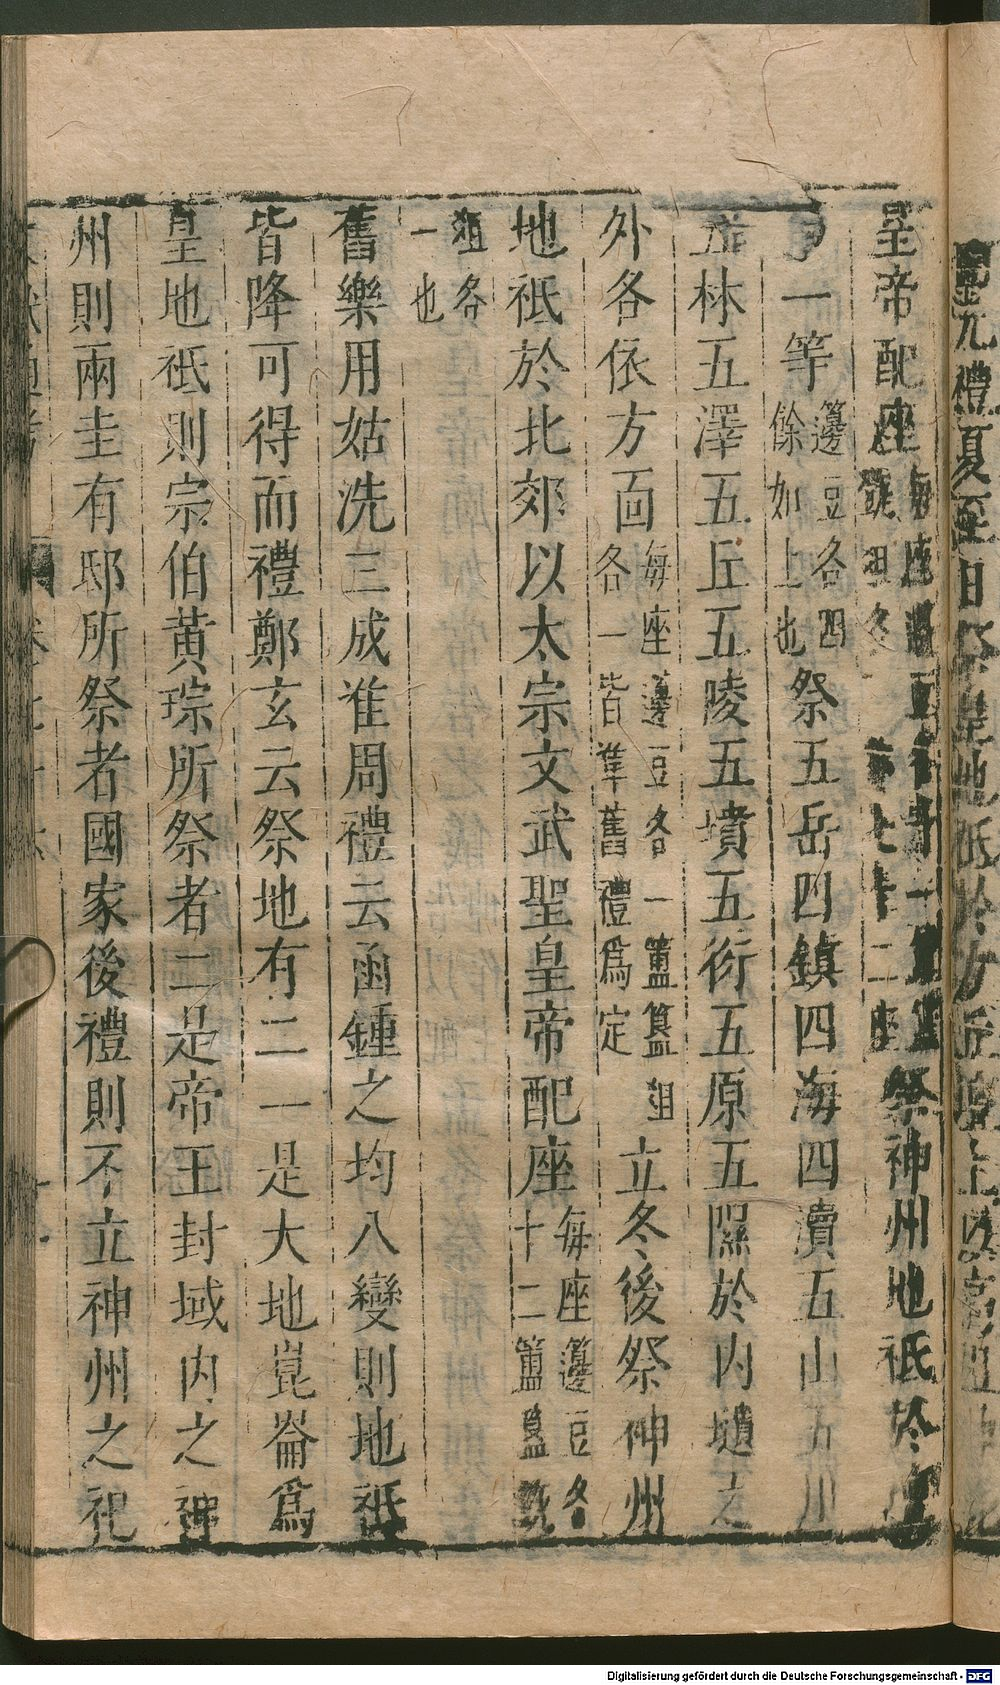 開元禮夏至日祭皇地祇於方丘壇上以高祖神堯
皇帝配座每座籩豆各十二簠簋㽅俎各祭神州地祇於壇
第一等籩豆各四餘如上也祭五岳四鎮四海四瀆五山五川
五林五澤五丘五陵五墳五衍五原五隰於內壝之
外各依方面每座籩豆各一簠簋俎各一皆準舊禮為定立冬後祭神州
地祇於北郊以太宗文武聖皇帝配座每座籩豆各十二簠簋㽅
俎各一也
舊樂用姑洗三成准周禮云函鍾之均八變則地祇
皆降可得而禮鄭玄云祭地有二一是大地崑崙為
皇地祇則宗伯黃琮所祭者二是帝王封域內之神
州則兩圭有邸所祭者國家後禮則不立神州之祀
Digitalisierung gefördert durch die Deutsche Forschungsgemeinschaft - DFG